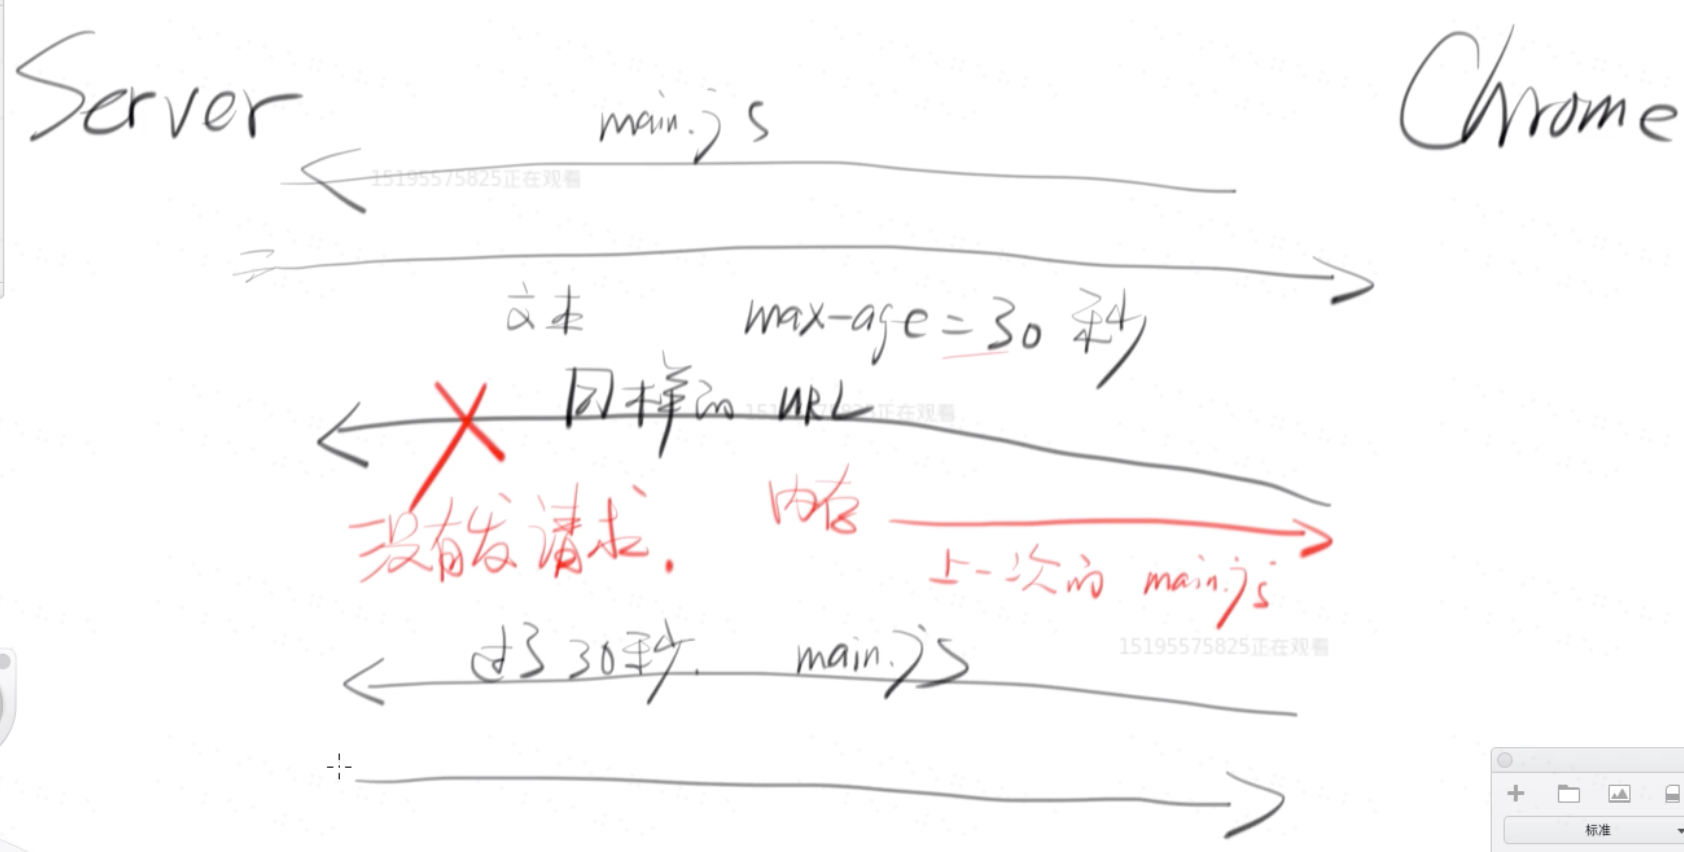 Server
Chrome
main.js
15195575825正在观看
文本 max-age=30 秒
同样的 URL
15195575825正在观看
没有发请求. 内存
上一次的 main.js
15195575825正在观看
过了30秒. main.js
标准